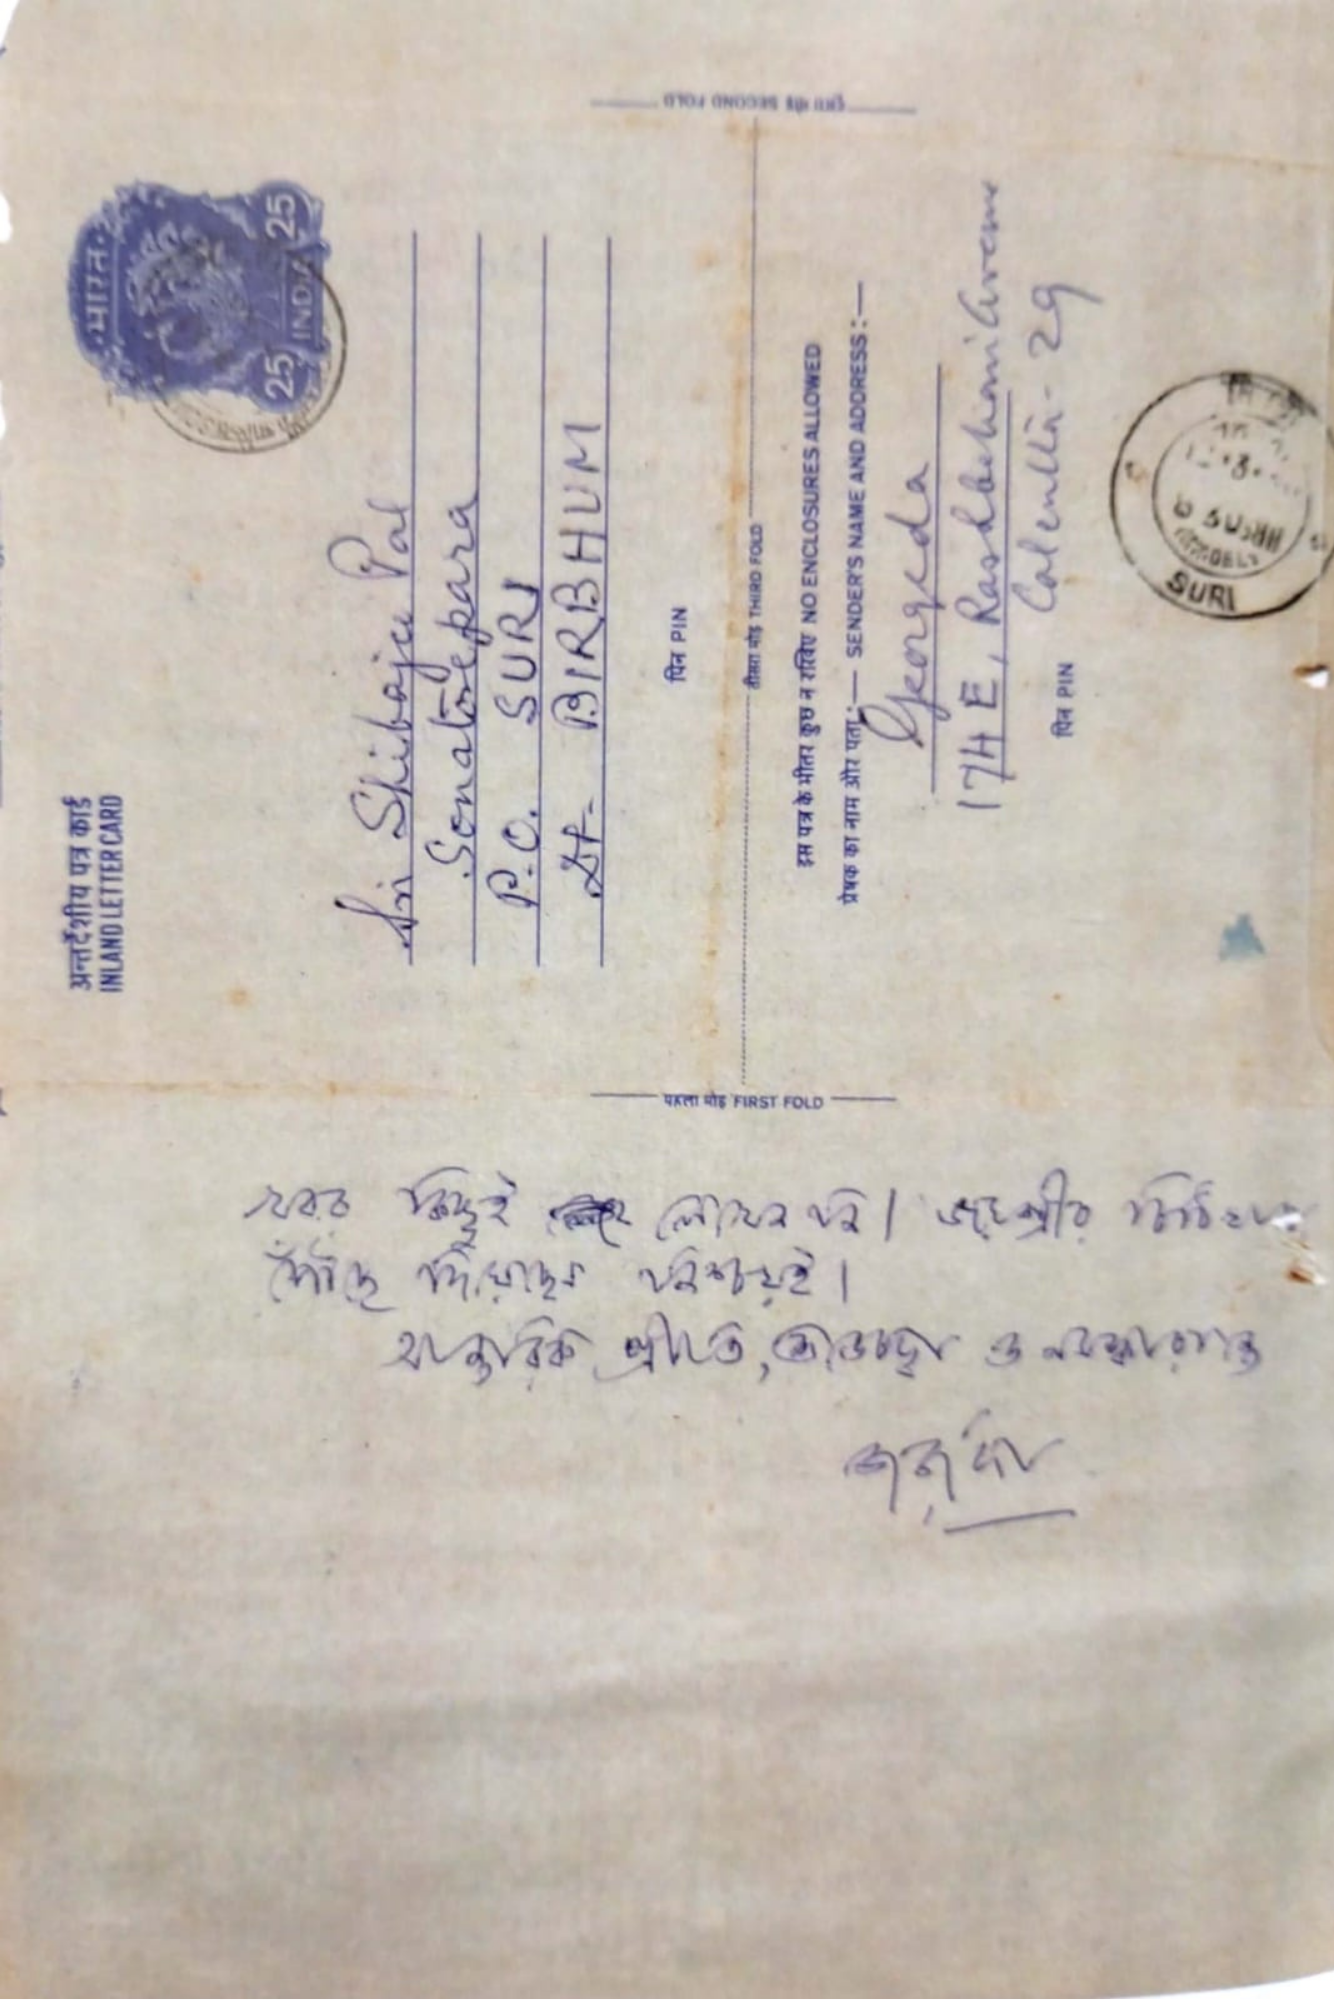 अन्तर्देशीय पत्र कार्ड
INLAND LETTER CARD
भारत
25 INDIA 25
Sri Shibaji Pal
Sonatorepara
P.O. SURI
Dt- BIRBHUM
पिन PIN
दूसरा मोड़ SECOND FOLD
तीसरा मोड़ THIRD FOLD
इस पत्र के भीतर कुछ न रखिए NO ENCLOSURES ALLOWED
प्रेषक का नाम और पता :— SENDER'S NAME AND ADDRESS :—
Georgeda
174 E, Rashbehari Avenue
Calcutta - 29
पिन PIN
SURI
पहला मोड़ FIRST FOLD
খবর কিছুই লেখেন নি। জয়শ্রীর
পৌঁছে দিয়েছেন নিশ্চয়ই।
আন্তরিক প্রীতি, শুভেচ্ছা ও নমস্কারান্তে
জর্জদা